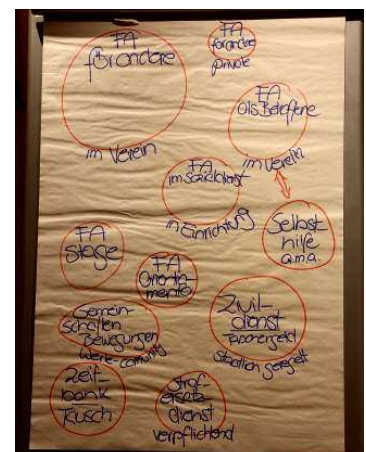 FA
für andere
im Verein
FA
für andre
private
FA
als Betroffene
im Verein
FA
im Sozialdienst
in Einrichtung
Selbst
hilfe
a.m.a.
FA
stage
FA
Gemein-
schaften
Bewegungen
Zivil-
dienst
staatlich geregelt
Zeit-
bank
Tausch
Straf
ersatz
dienst
verpflichtend